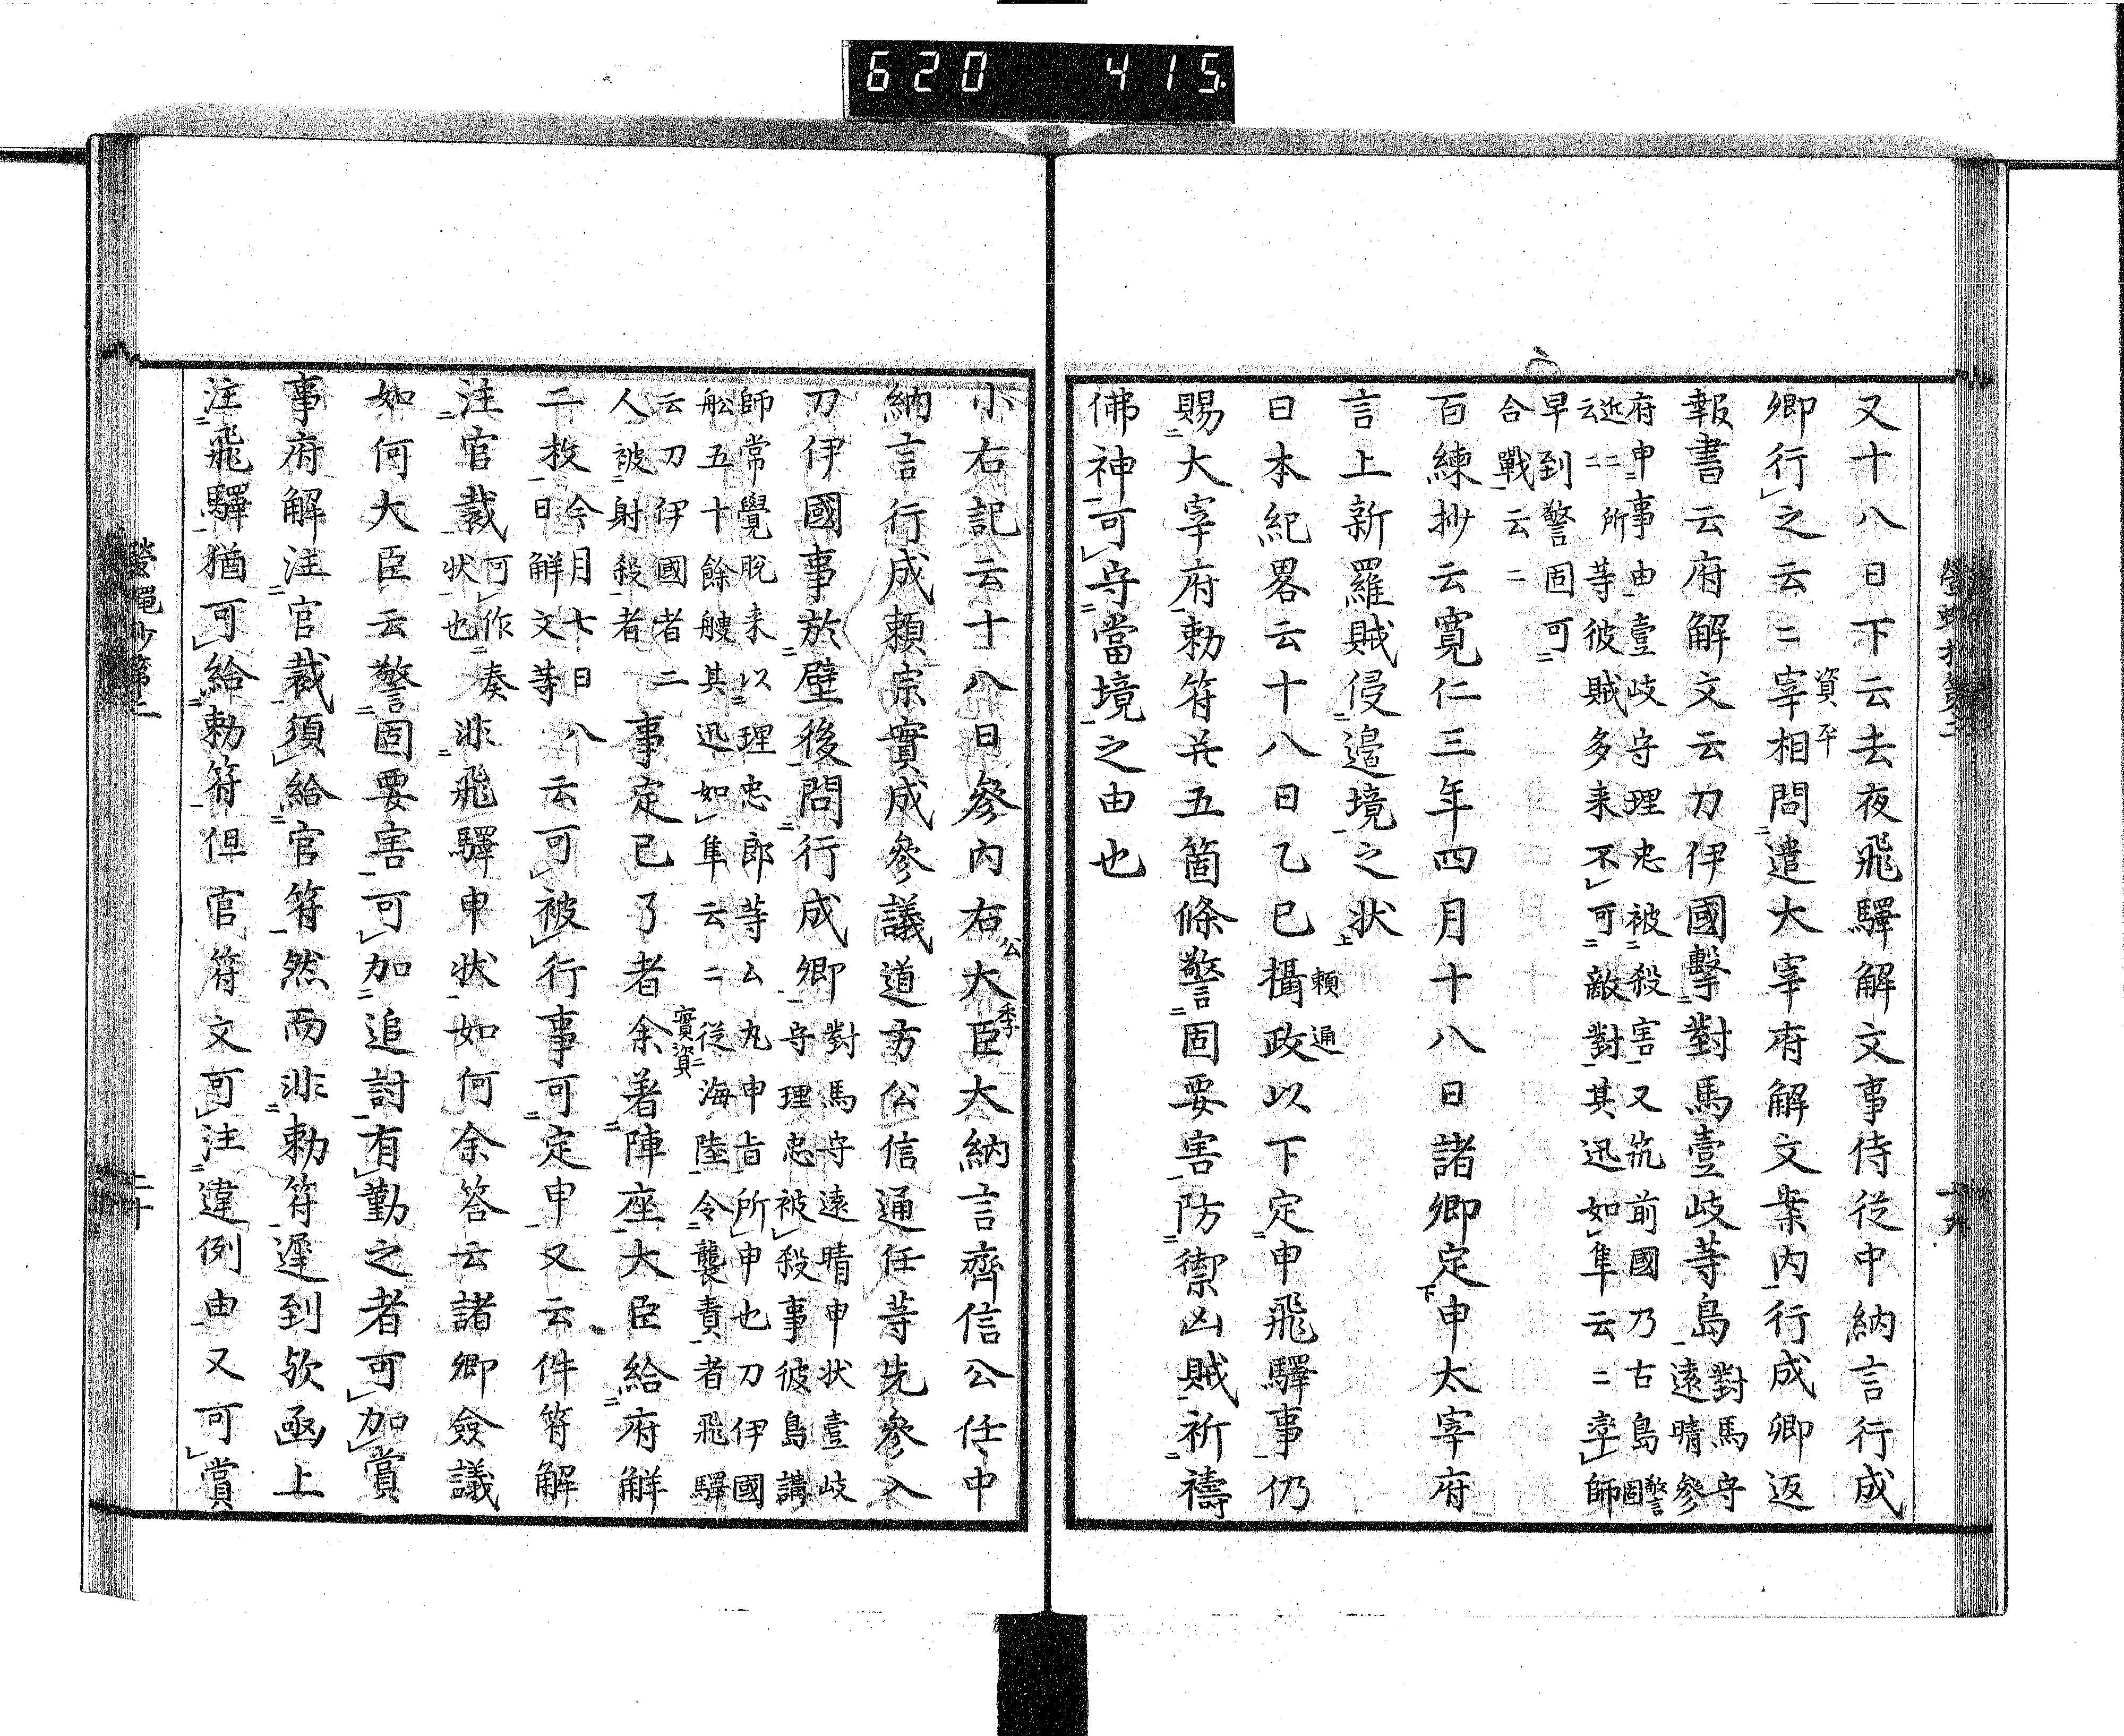 620 415
又十八日下云去夜飛驛解文事侍從中納言行成
卿行之云〻宰相資平問遣大宰府解文案内行成卿返
報書云府解文云刀伊國擊對馬壹岐等島對馬守
遠晴參
府申事由壹岐守理忠被殺害又筑前國乃古島警固
近云〻所等彼賊多来不可敵對其迅如隼云〻率師
早到警固可
合戰云〻
百練抄云寛仁三年四月十八日諸卿定申太宰府
言上新羅賊侵邉境之状
日本紀畧云十八日乙巳攝政頼通以下定申飛驛事仍
賜大宰府勅符并五箇條警固要害防禦凶賊祈禱
佛神可守當境之由也
小右記云十八日參内右大臣公季大納言齊信公任中
納言行成頼宗實成參議道方公信通任等先參入
刀伊國事於壁後問行成卿對馬守遠晴申状壹岐
守理忠被殺事彼島講
師常覺脱来以理忠郎等厶丸申旨所申也刀伊國
舩五十餘艘其迅如隼云〻從海陸令襲責者飛驛
云刀伊國者二
人被射殺者事定已了者余實資着陣座大臣給府解
二枚今月七日八
日解文等云可被行事可定申又云件符解
注官裁可作奏
状也非飛驛申状如何余答云諸卿僉議
如何大臣云警固要害可加追討有勤之者可加賞
事府解注官裁須給官符然而非勅符遲到欤亟上
注飛驛猶可給勅符但官符文可注違例由又可賞
第二
二十